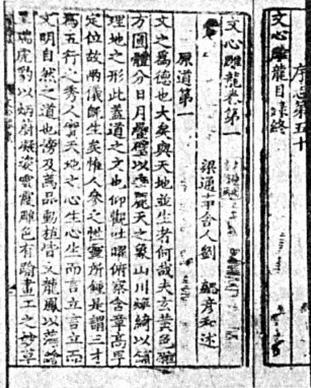 序志第五十
文心雕龍目錄終
文心雕龍卷第一
梁通事舍人劉 勰彥和述
原道第一
文之為德也大矣與天地並生者何哉夫玄黃色雜
方圓體分日月疊璧以垂麗天之象山川煥綺以鋪
理地之形此蓋道之文也仰觀吐曜俯察含章高卑
定位故兩儀既生矣惟人參之性靈所鍾是謂三才
為五行之秀人實天地之心生心生而言立言立而
文明自然之道也傍及萬品動植皆文龍鳳以藻繪
呈瑞虎豹以炳蔚凝姿雲霞雕色有踰畫工之妙草